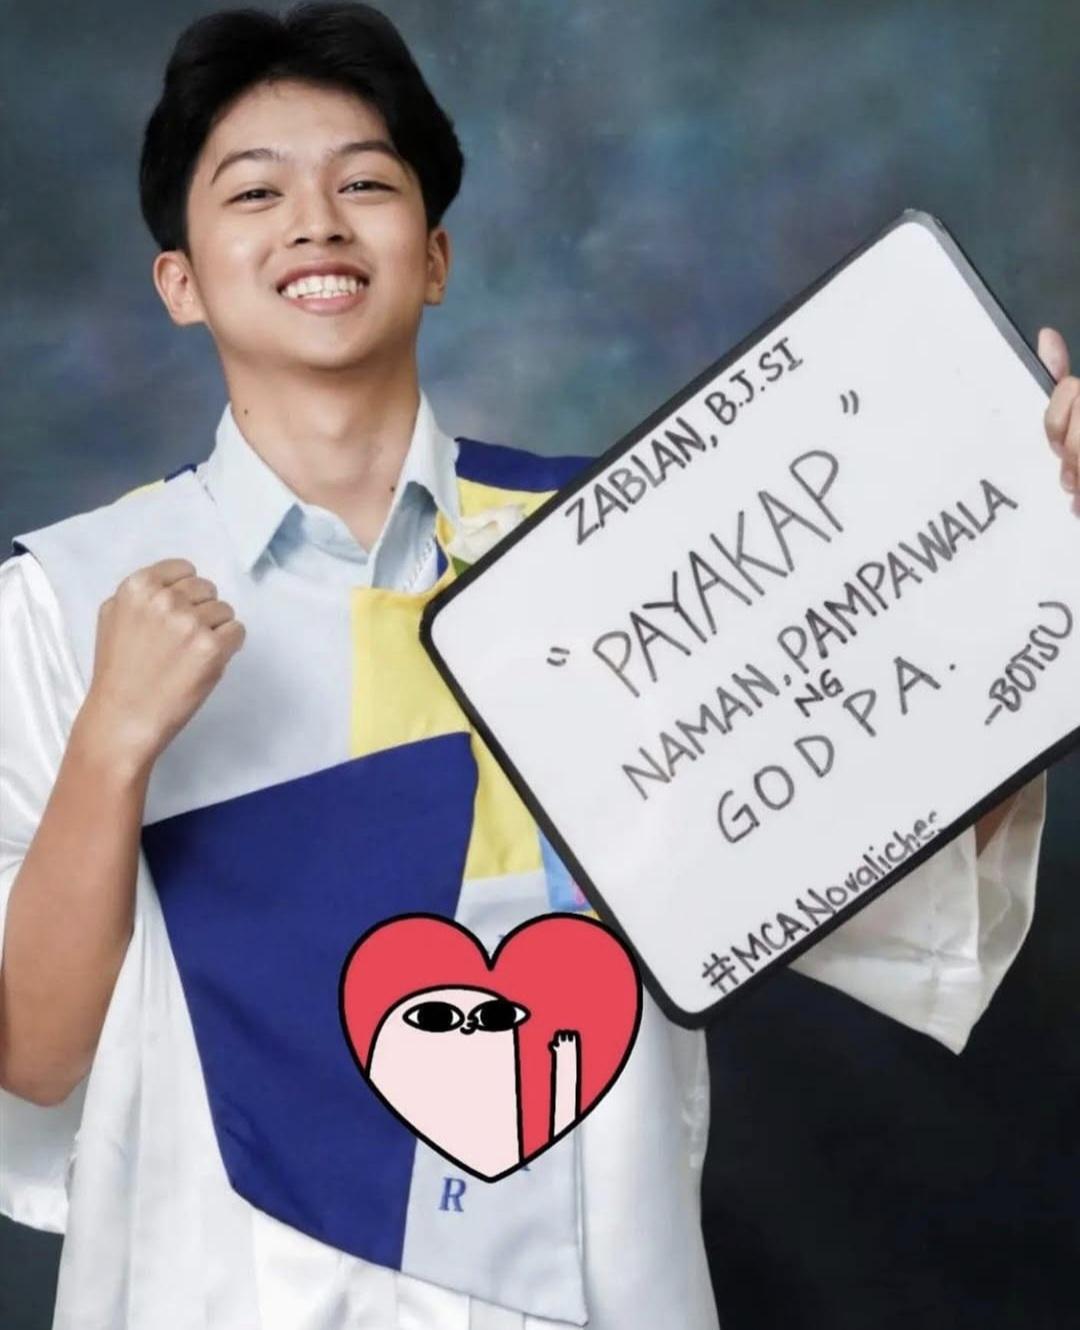 ZABLAN, B.J.SI
"PAYAKAP"
NAMAN, PAMPAWALA
NG
GOD PA.
-BOTSU
#MCANovaliches
R